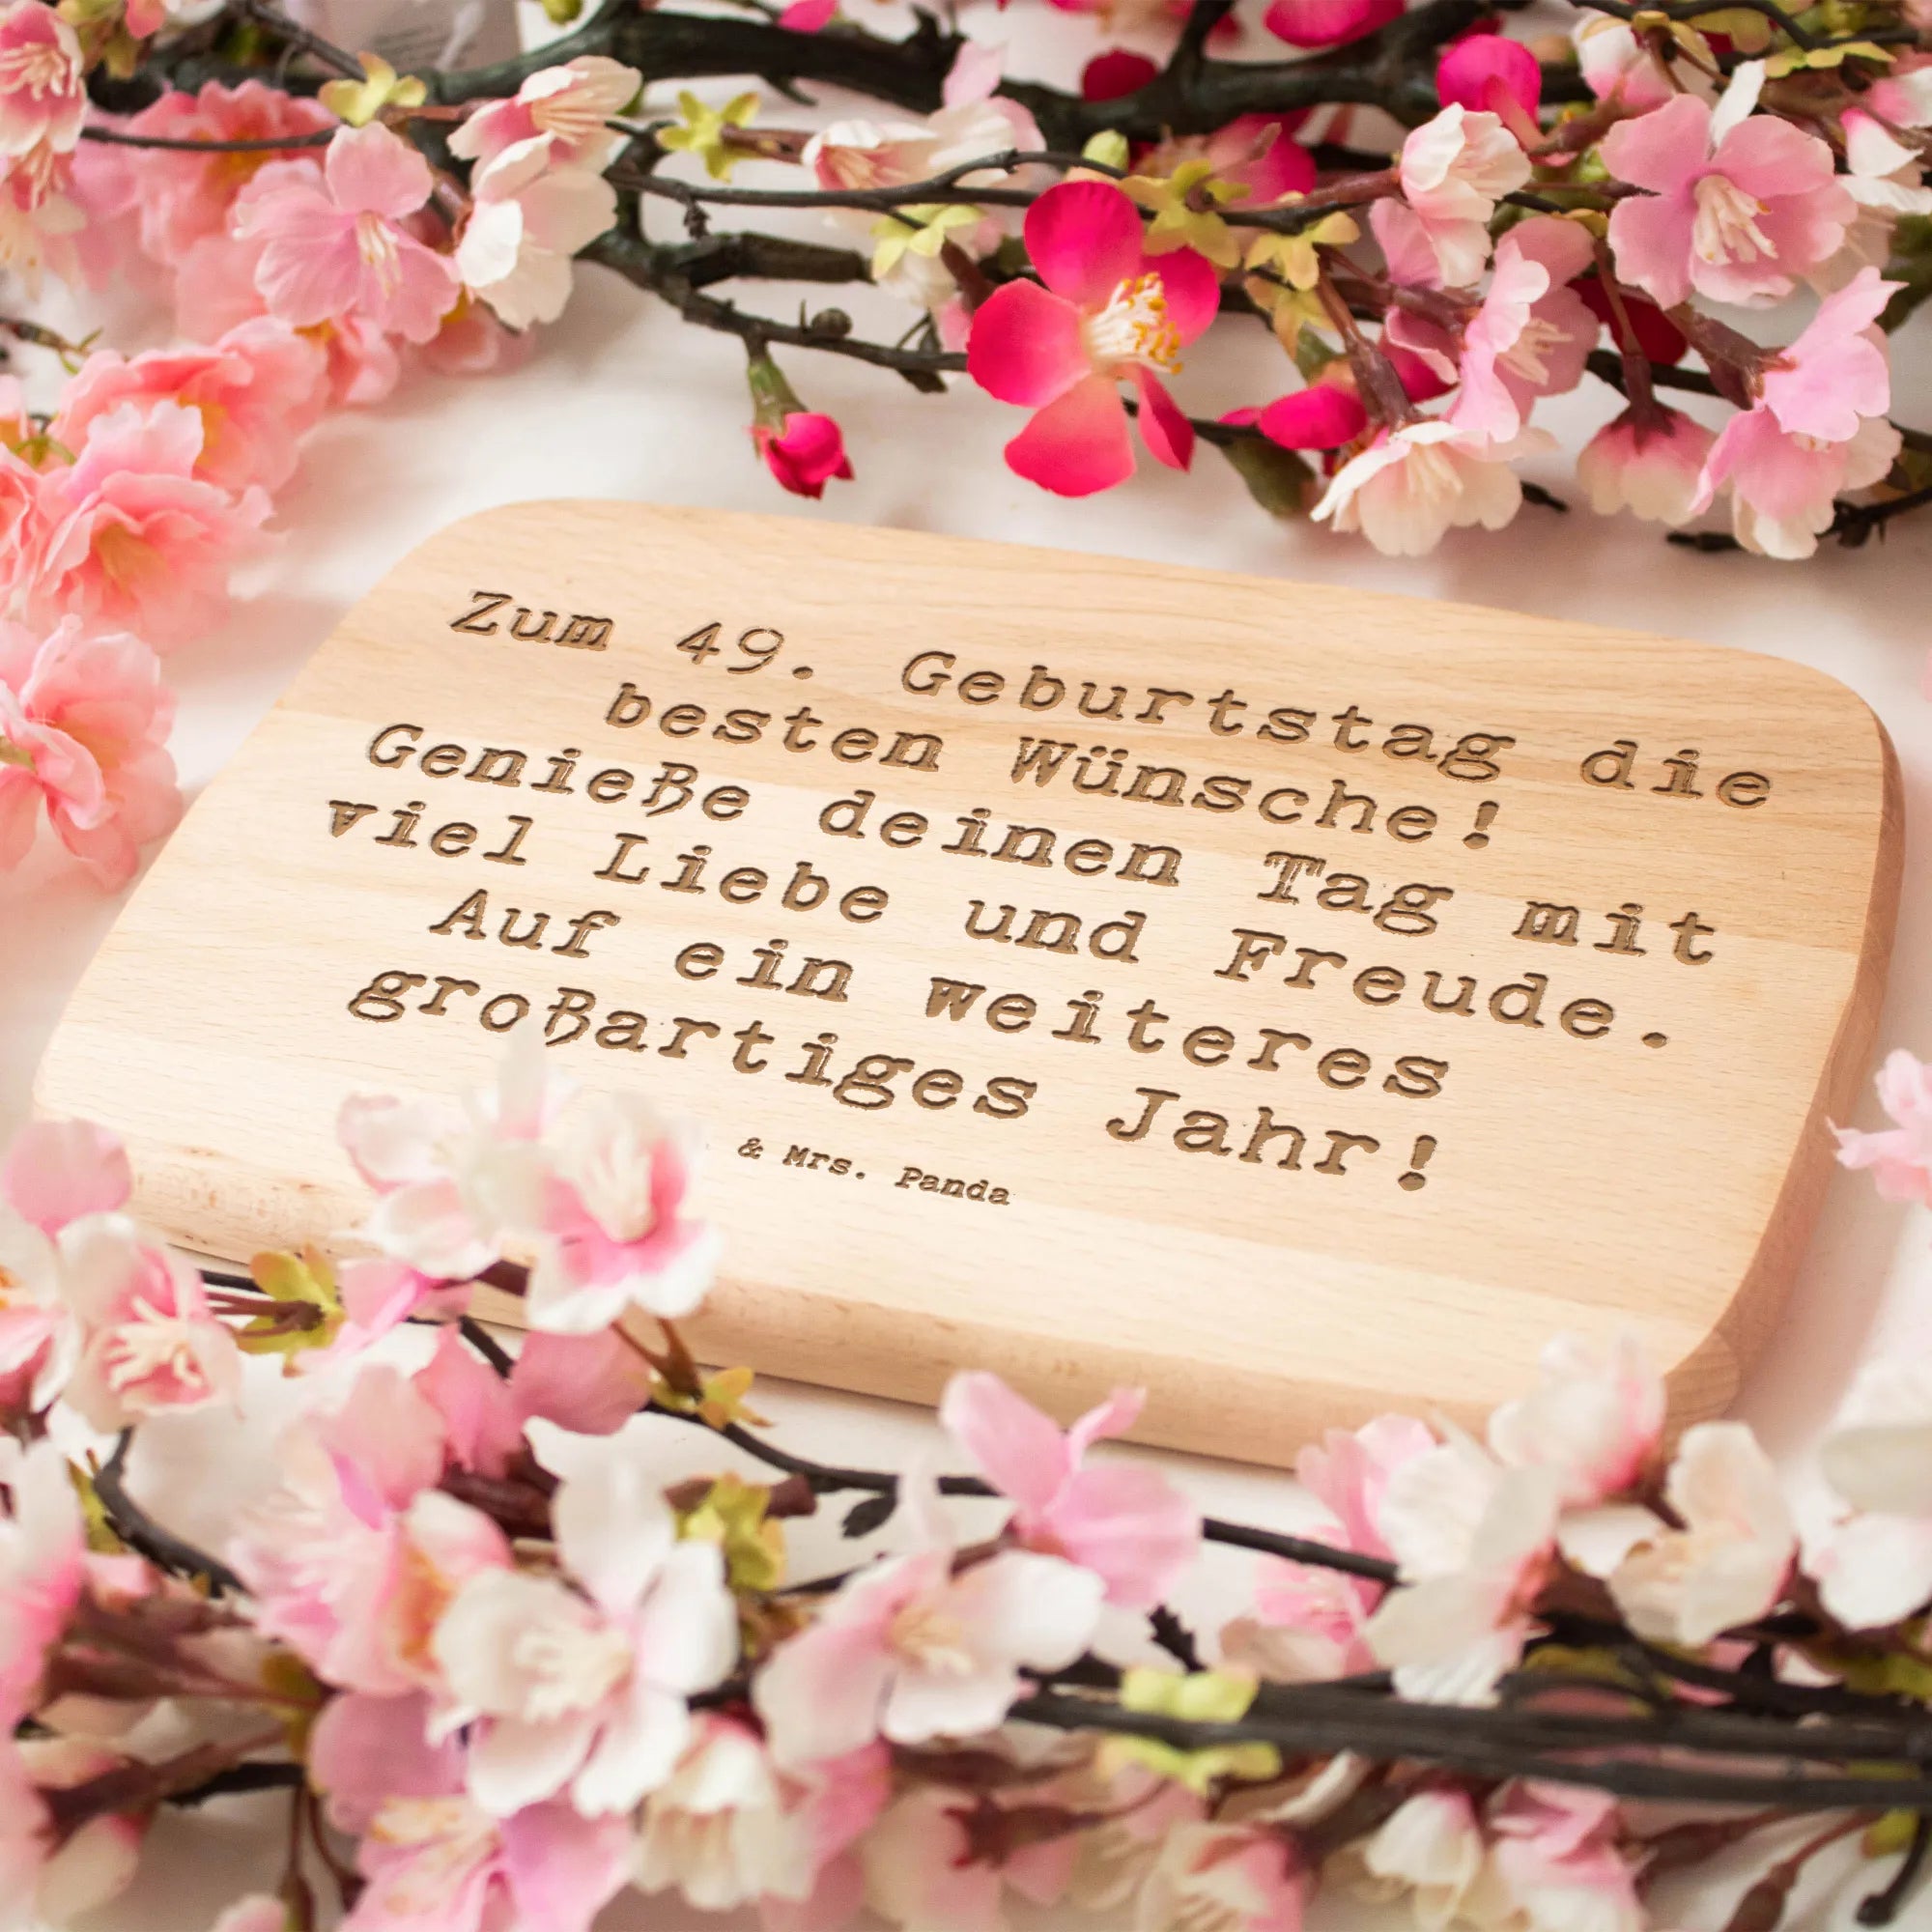 Zum 49. Geburtstag die
besten Wünsche!
Genieße deinen Tag mit
viel Liebe und Freude.
Auf ein weiteres
großartiges Jahr!
& Mrs. Panda